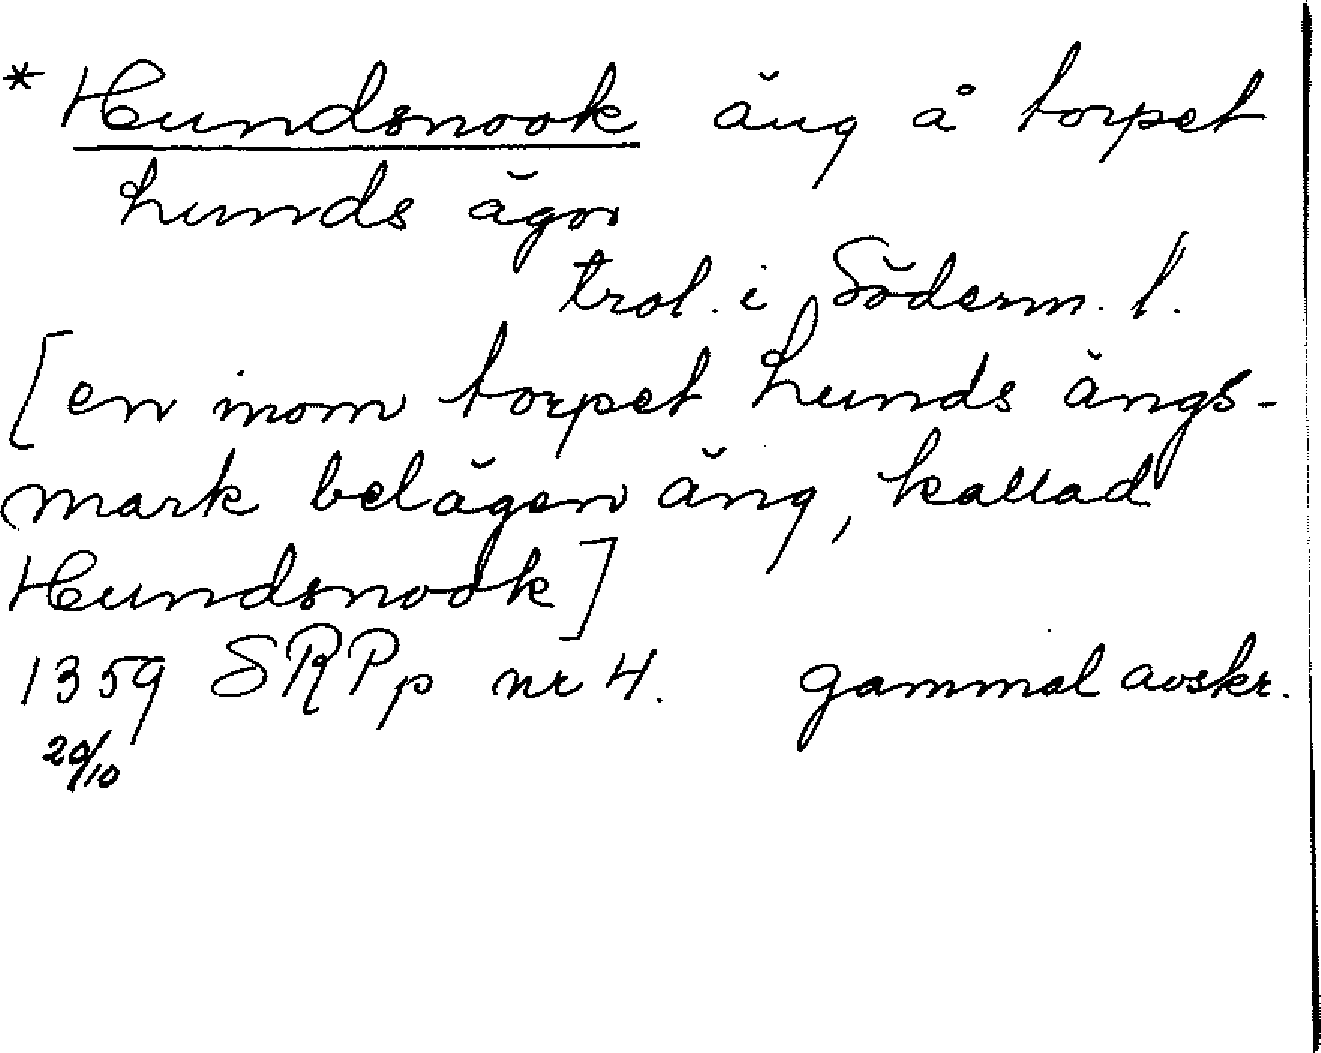 * Hundsnook äng å torpet
hunds ägor
trol. i Söderm. l.
[en inom torpet hunds ängs-
mark belägen äng, kallad
Hundsnook]
1359 SRPp nr 4. gammal avskr.
20/10